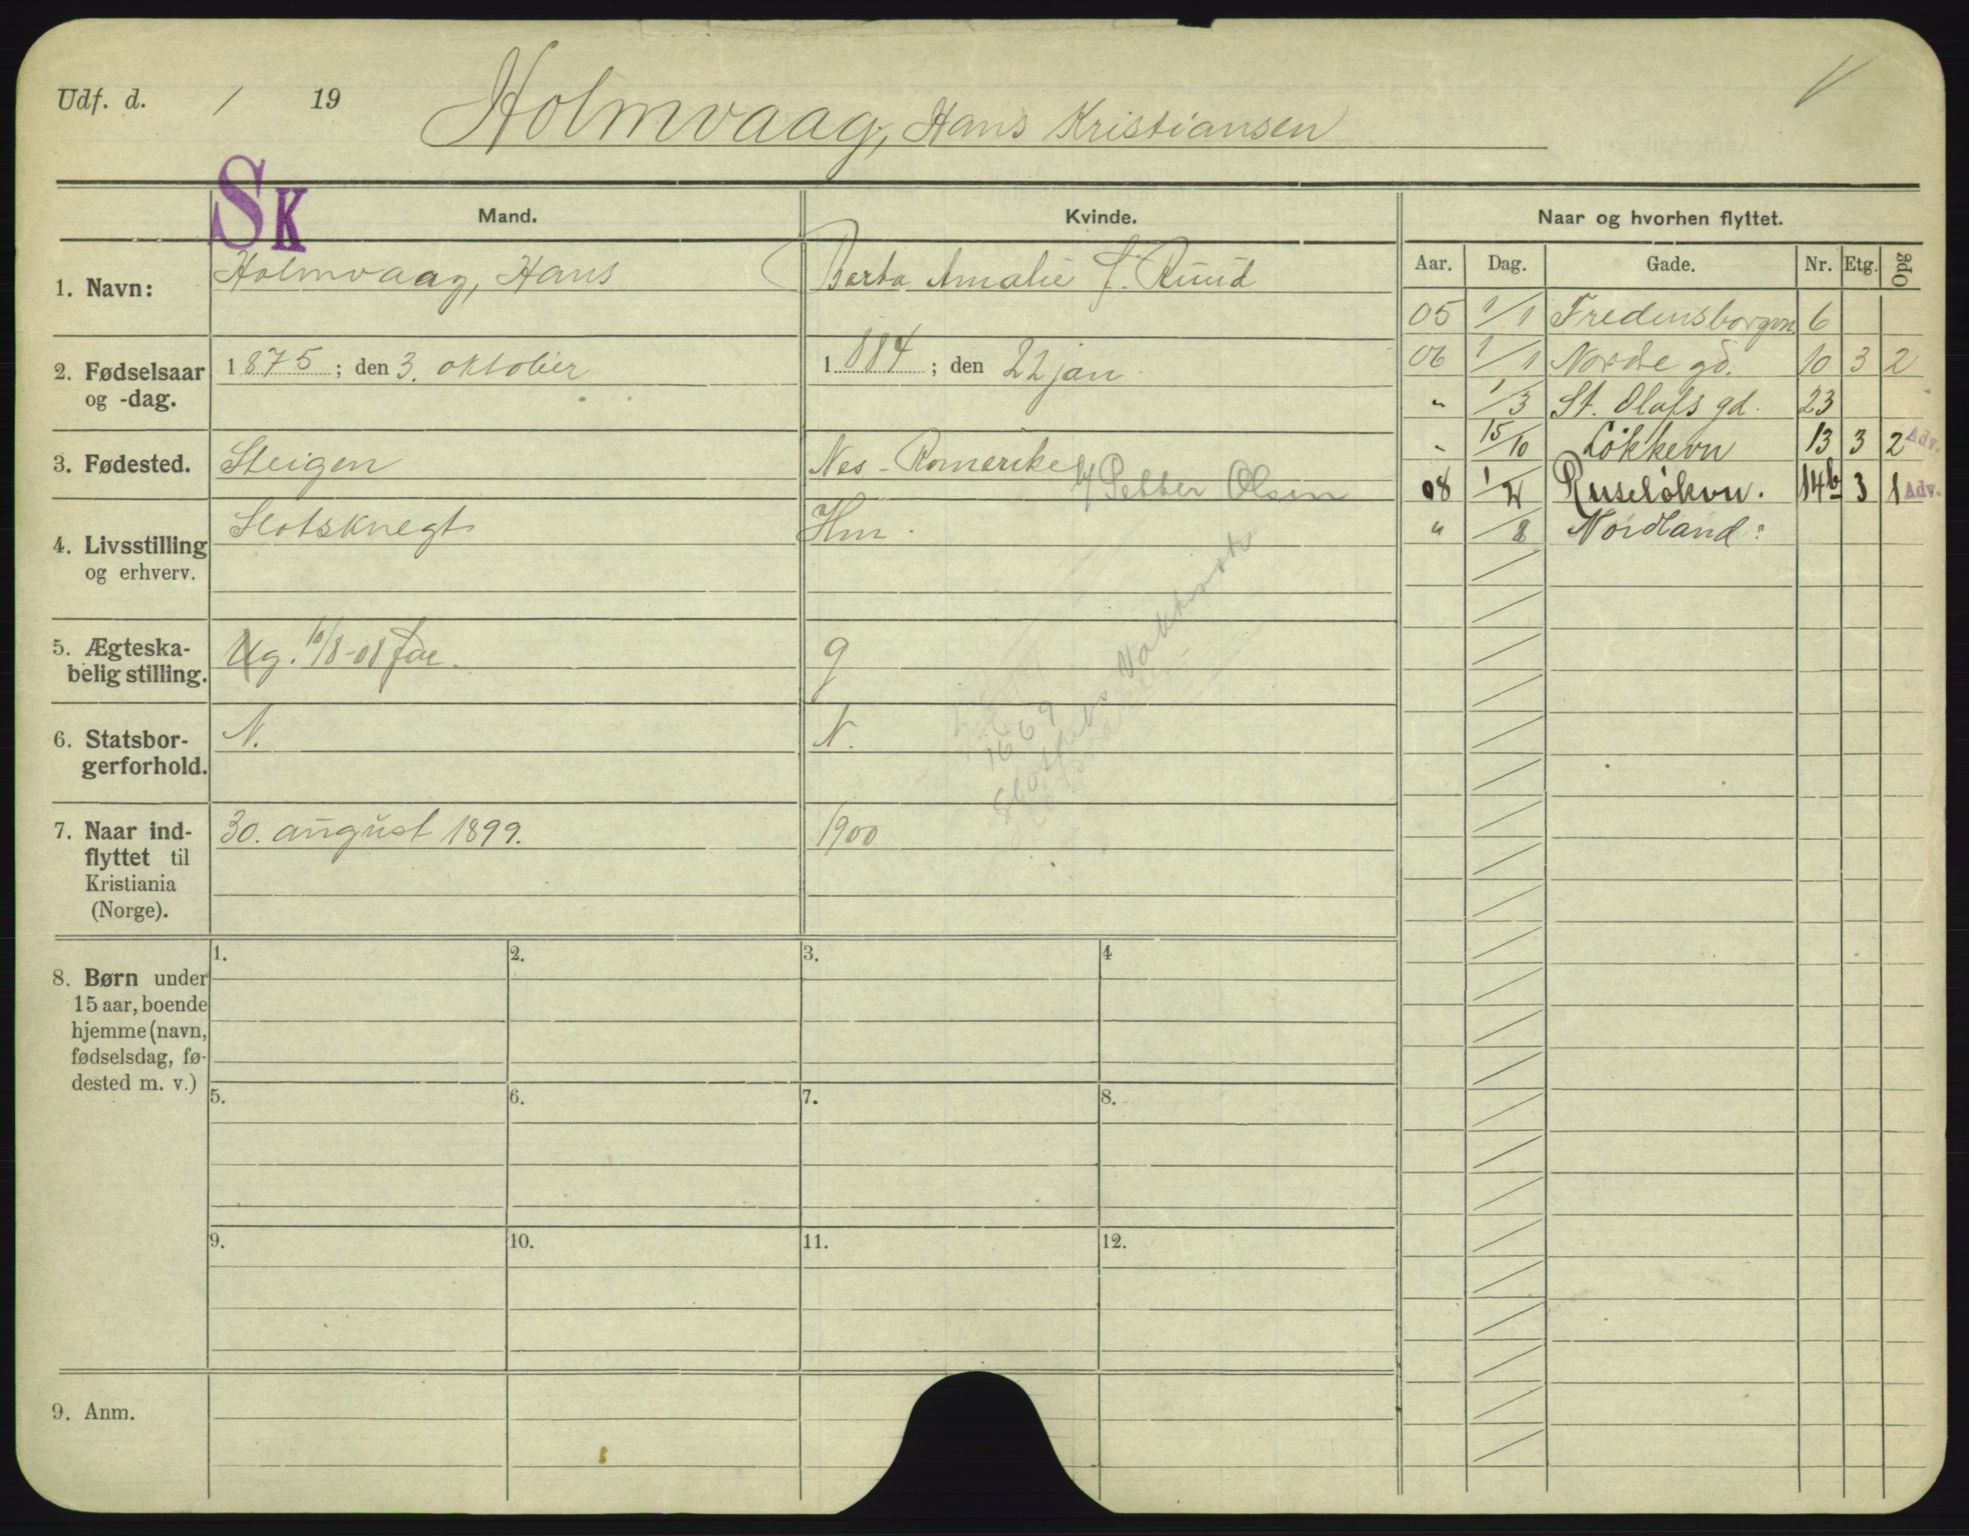 Udf. d. / 19 Holmvaag, Hans Kristiansen
SK
Mand. Kvinde. Naar og hvorhen flyttet.
Aar. Dag. Gade. Nr. Etg. Opg
1. Navn: Holmvaag, Hans Berta Amalie f. Ruud
05 1/1 Fredensborgvn. 6
2. Fødselsaar og -dag. 1875; den 3. oktober 1884; den 22 jan
06 1/1 Nordre gd. 10 3 2
" 1/3 St. Olafs gd. 23
3. Fødested. Steigen Nes - Romerike
Petter Olsen
" 15/10 Løkkevn 13 3 2 Adv.
08 Ruseløkvn. 14b 3 1 Adv.
4. Livsstilling og erhverv. Slotsknegt Hm.
" /8 Nordland:
5. Ægteska-
belig stilling. Ug. 10/8-08 g
6. Statsbor-
gerforhold. N. N.
1669
7. Naar ind-
flyttet til
Kristiania
(Norge). 30. august 1899. 1900
8. Børn under
15 aar, boende
hjemme (navn,
fødselsdag, fø-
dested m. v.)
1. 2. 3. 4
5. 6. 7. 8.
9. 10. 11. 12.
9. Anm.